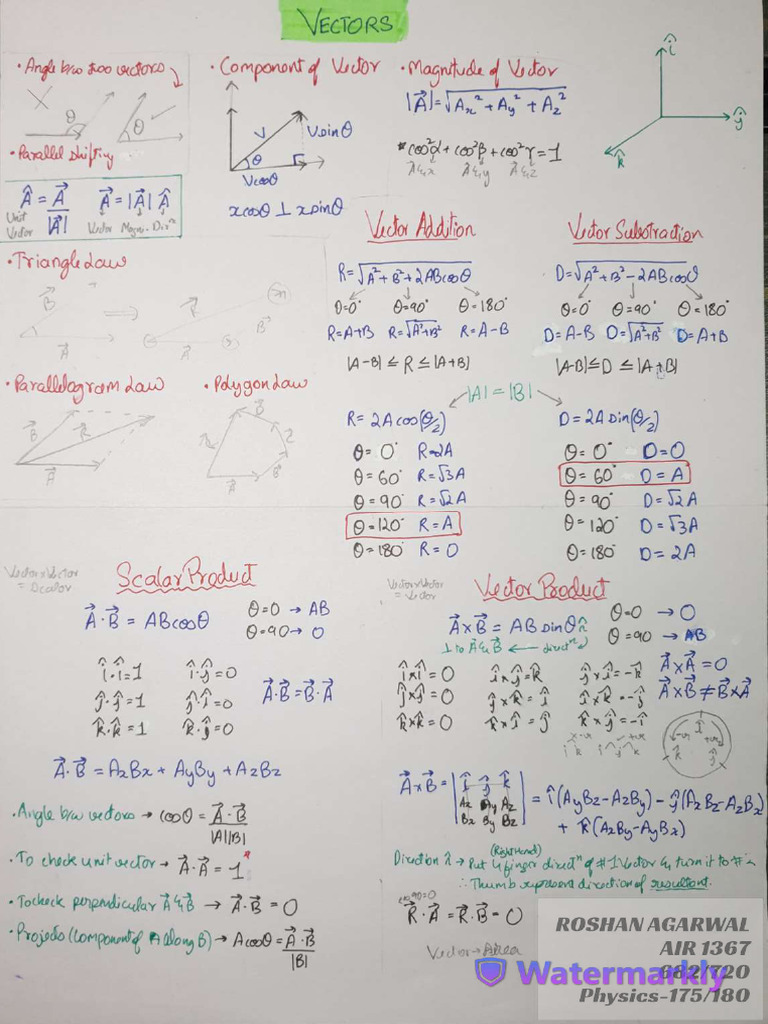 VECTORS
• Angle b/w two vectors
θ
θ
• Parallel shifting
Â = A⃗ / |A⃗|
A⃗ = |A⃗| Â
Unit Vector
Vector Magni. Direcⁿ
• Component of Vector
V
Vsinθ
θ
Vcosθ
xcosθ ⊥ xsinθ
• Magnitude of Vector
|A⃗| = √Ax² + Ay² + Az²
* cos²α + cos²β + cos²γ = 1
A⃗ & x A⃗ & y A⃗ & z
î
ĵ
k̂
• Triangle Law
B⃗
A⃗
⇒
R⃗
A⃗
B⃗
• Parallelogram Law
B⃗
R⃗
A⃗
• Polygon Law
Vector Addition
R = √A² + B² + 2ABcosθ
θ=0° θ=90° θ=180°
R=A+B R=√A²+B² R=A-B
|A-B| ≤ R ≤ |A+B|
Vector Substraction
D = √A² + B² - 2ABcosθ
θ=0° θ=90° θ=180°
D=A-B D=√A²+B² D=A+B
|A-B| ≤ D ≤ |A+B|
|A| = |B|
R = 2Acos(θ/2)
θ = 0° R=2A
θ = 60° R=√3A
θ = 90° R=√2A
θ = 120° R=A
θ = 180° R=0
D = 2Asin(θ/2)
θ = 0° D=0
θ = 60° D=A
θ = 90° D=√2A
θ = 120° D=√3A
θ = 180° D=2A
Vector×Vector
= Scalar
Scalar Product
A⃗·B⃗ = ABcosθ
θ=0 → AB
θ=90 → 0
î·î=1 î·ĵ=0
ĵ·ĵ=1 ĵ·î=0
k̂·k̂=1 k̂·ĵ=0
A⃗·B⃗ = B⃗·A⃗
A⃗·B⃗ = AxBx + AyBy + AzBz
• Angle b/w vectors → cosθ = A⃗·B⃗ / |A||B|
• To check unit vector → A⃗·A⃗ = 1
• To check perpendicular A⃗ & B⃗ → A⃗·B⃗ = 0
• Projecⁿ (Component of A along B) → Acosθ = A⃗·B⃗ / |B|
Vector×Vector
= Vector
Vector Product
A⃗×B⃗ = ABsinθ n̂
⊥ to A⃗ & B⃗ ← direcⁿ
θ=0 → 0
θ=90 → AB
î×î=0 î×ĵ=k̂ ĵ×î=-k̂
ĵ×ĵ=0 ĵ×k̂=î î×k̂=-ĵ
k̂×k̂=0 k̂×î=ĵ k̂×ĵ=-î
A⃗×A⃗=0
A⃗×B⃗ ≠ B⃗×A⃗
-ve +ve
î
k̂ ĵ
A⃗×B⃗ = | î ĵ k̂ |
Ax Ay Az
Bx By Bz
= î(AyBz-AzBy) - ĵ(AxBz-AzBx)
+ k̂(AxBy-AyBx)
(Right Hand)
Direction → Put 4 finger direcⁿ of #1 Vector & turn it to #2
∴ Thumb represent direction of resultant.
cos90=0
R⃗·A⃗ = R⃗·B⃗ = 0
Vector → Area
ROSHAN AGARWAL
AIR 1367
682/720
Physics-175/180
Watermarkly